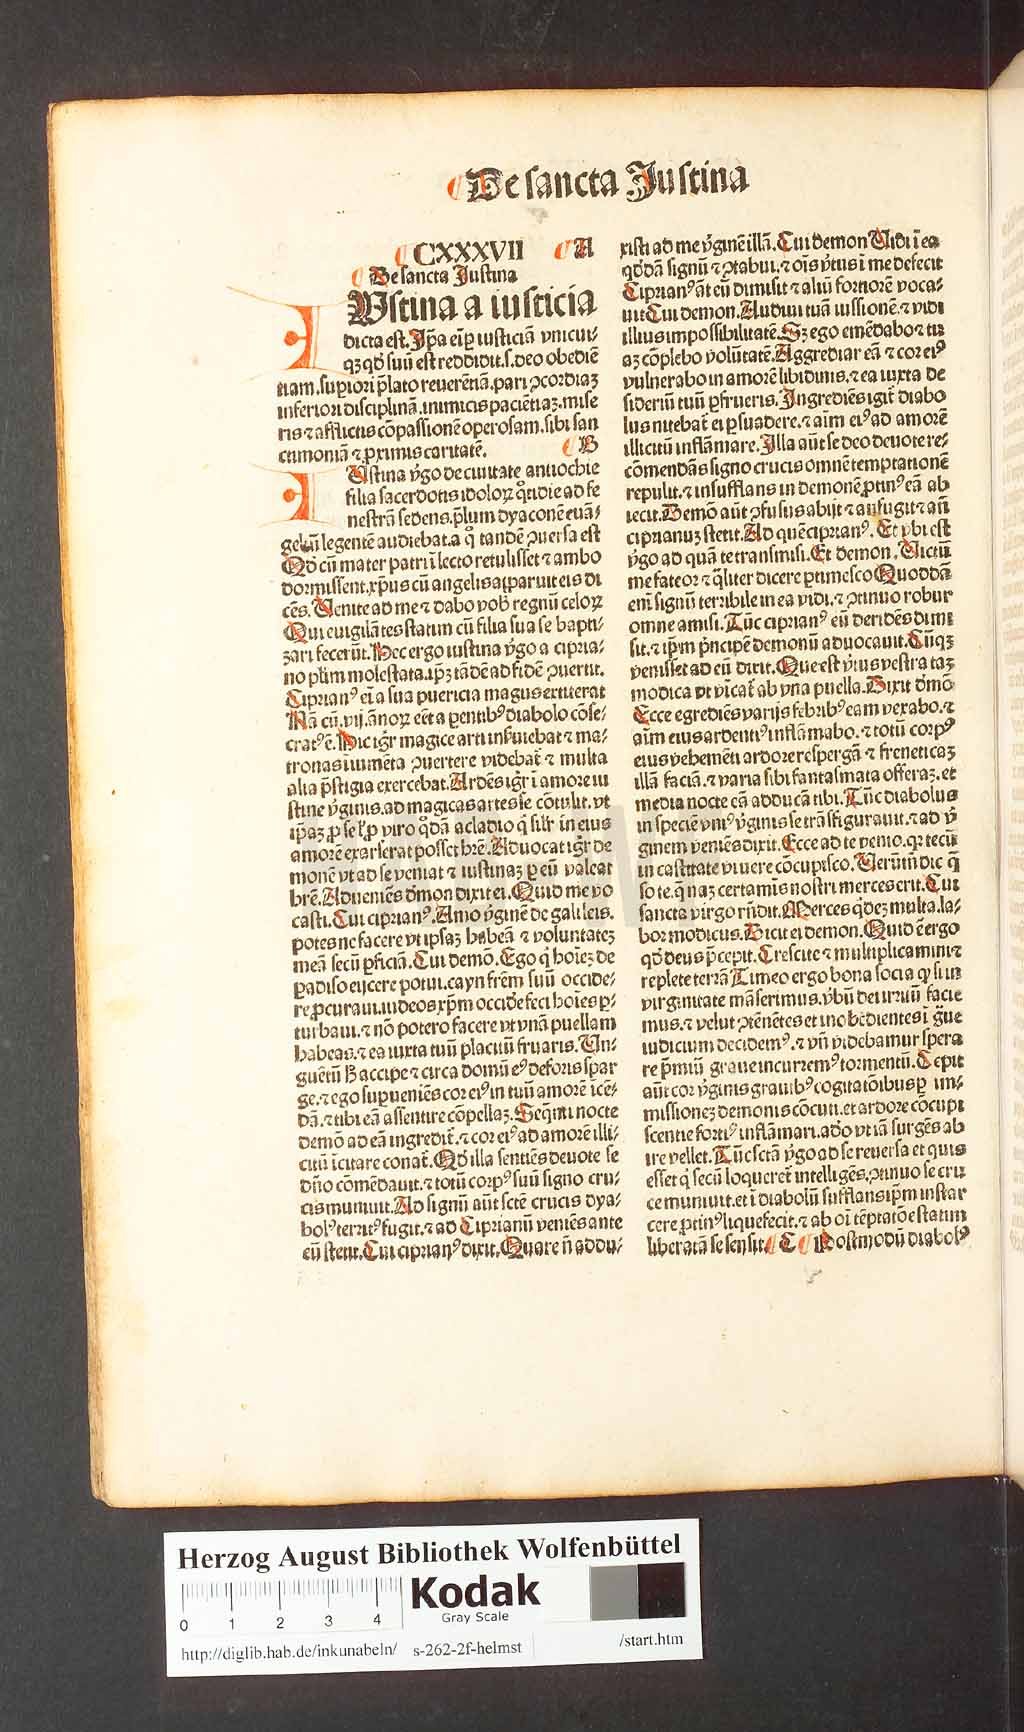 De sancta Justina
CXXXVII A
De sancta Justina
IUstina a iusticia
dicta est. Ip̄a em̄ iusticiā vnicui-
qꝫ qd' suū est reddidit .s. deo obediē
tiam. supiori p̄lato reuerētiā. pari ↄcordiaꝫ
inferiori disciplinā. inimicis paciētiaꝫ. mise
ris ⁊ afflictis cōpassionē operosam. sibi san
ctimoniā ⁊ ꝓximis caritatē. B
IUstina v̄go de ciuitate antiochie
filia sacerdotis idoloꝝ q̊tidie ad fe
nestrā sedens. p̄lum dyaconē euā-
geliū legentē audiebat. a q̊ tandē ↄuersa est
Qd' cū mater patri ī lecto retulisset ⁊ ambo
dormissent. xp̄us cū angelis apparuit eis di
cēs. Uenite ad me ⁊ dabo vob' regnū celoꝝ
Qui euigilātes statim cū filia sua se bapti-
ȝari fecerūt. Hec ergo iustina v̄go a cipria-
no plm̄ molestata. ip̄ꝫ tādē ad fidē ↄuertit.
Ciprianꝰ em̄ a sua puericia magus extiterat
Nā cū .vij. ānoꝝ eēt a pentibꝰ diabolo cōse-
cratꝰ ē. Hic igr̄ magice arti insuiebat ⁊ ma-
tronas iumēta ↄuertere videbat̄ ⁊ multa
alia p̄stigia exercebat. Ardēs igr̄ ī amore iu
stine v̄ginis. ad magicas artes se cōtulit. vt
ip̄aꝫ ꝓ se l' ꝓ viro q̊dā acladio q̄ silr̄ in eius
amorē exarserat posset hr̄e. Aduocat igr̄ de
monē vt ad se veniat ⁊ iustinaꝫ ꝑ eū valeat
hr̄e. Adueniēs dēmon dixit ei. Quid me vo
casti. Cui ciprianꝰ. Amo v̄ginē de galileis.
potes ne facere vt ipsaꝫ habeā ⁊ voluntateꝫ
meā secū p̄ficiā. Cui demō. Ego q̄ hoīeꝫ de
padiso eijcere potui. cayn frēm suū occide-
re ꝓcuraui. iudeos xp̄m occidē feci hoīes ꝑ-
turbaui. ⁊ nō potero facere vt vnā puellam
habeas. ⁊ ea iuxta tuū placitū fruaris. Un-
guētū h̄ accipe ⁊ circa domū eꝰ deforis spar
ge. ⁊ ego supueniēs cor eiꝰ in tuū amorē īcē-
dā. ⁊ tibi eā assentire cōpellaꝫ. Seq̄nti nocte
demō ad eā ingredit̄. ⁊ cor eiꝰ ad amorē illi-
citū īcitare conat̄. Qd' illa sentiēs deuote se
dn̄o cōmēdauit. ⁊ totū corpꝰ suū signo cru-
cis muniuit. Ad signū aūt sctē crucis dya-
bolꝰ territꝰ fugit. ⁊ ad Ciprianū veniēs ante
eū stetit. Cui ciprianꝰ dixit. Quare n̄ addu-
xisti ad me v̄ginē illā. Cui demon Uidi ī ea
qd'dā signū ⁊ ↄtabui. ⁊ oīs v̄tus ī me defecit
Ciprianꝰ aūt eū dimisit ⁊ aliū fortiorē voca-
uit Cui demon. Audiui tuā iussionē. ⁊ vidi
illius impossibilitatē. Sꝫ ego emēdabo ⁊ tu
aꝫ cōplebo volūtatē. Aggrediar eā ⁊ cor eiꝰ
vulnerabo in amorē libidinis. ⁊ ea iuxta de
sideriū tuū ꝑfrueris. Ingrediēs igit̄ diabo
lus nitebat̄ ei ꝑsuadere. ⁊ aīm eiꝰ ad amorē
illicitū inflāmare. Illa aūt se deo deuote re-
cōmendās signo crucis omnē temptationē
repulit. ⁊ insufflans in demonē ꝓtinꝰ eā ab
iecit. Demō aūt ↄfusus abijt ⁊ aufugit ⁊ añ
ciprianuꝫ stetit. Ad quē ciprianꝰ. Et vbi est
v̄go ad quā te transmisi. Et demon. Uictū
me fateor ⁊ q̄liter dicere ꝑtimesco Quoddā
em̄ signū terribile in ea vidi. ⁊ ↄtinuo robur
omne amisi. Tūc ciprianꝰ eū deridēs dimi
sit. ⁊ ip̄m p̄ncipē demoniū aduocauit. Cūqꝫ
venisset ad eū dicit. Que est v̄tus vestra taꝫ
modica vt vicat̄ ab vna puella. Dixit dēmō
Ecce egrediēs varijs febribꝰ eam vexabo. ⁊
aīm eius ardentiꝰ inflāmabo. ⁊ totū corpꝰ
eius vehemēti ardore respergā ⁊ freneticaꝫ
illā faciā. ⁊ varia sibi fantasmata offeraꝫ. et
media nocte eā adducā tibi. Tūc diabolus
in speciē vniꝰ v̄ginis se trāsfigurauit. ⁊ ad v̄
ginem veniēs dixit. Ecce ad te venio. qꝛ tecū
in castitate viuere cōcupisco. Uerūtm̄ dic q̄
so te. q̄ naꝫ certamis nostri merces erit. Cui
sancta virgo rn̄dit. Merces q̄deꝫ multa. la-
bor modicus. Dicit ei demon. Quid ē ergo
qd' deus p̄cepit. Crescite ⁊ multiplicamini ⁊
replete terrā Timeo ergo bona socia qꝫ si in
virginitate māserimus. v̄bū dei irritū facie
mus. ⁊ velut ↄtēnētes et inobedientes ī gͣue
iudicium decidemꝰ. ⁊ vn̄ videbamur spera
re p̄miū graue incurremꝰ tormentū. Cepit
aūt cor v̄ginis grauibꝰ cogitatōibus ꝑ im-
missioneꝫ demonis cōcuti. et ardore cōcupi
scentie fortiꝰ inflāmari. adō vt iā surgēs ab
ire vellet. Tūc sctā v̄go ad se reuersa et quis
esset q̄ secū loqueret̄ intelligēs. ↄtinuo se cru
ce muniuit. et ī diabolū sufflans ip̄m instar
cere ꝓtinꝰ liquefecit. ⁊ ab oī tēptatōe statim
liberatā se sensit. C Postmodū diabolꝰ
Herzog August Bibliothek Wolfenbüttel
0 1 2 3 4
Kodak
Gray Scale
http://diglib.hab.de/inkunabeln/ s-262-2f-helmst /start.htm